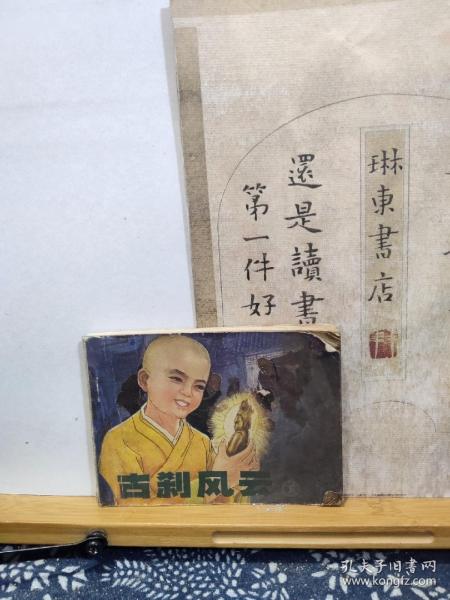 琳東書店
還是讀書
第一件好
古刹风云
孔夫子旧书网
www.kongfz.com